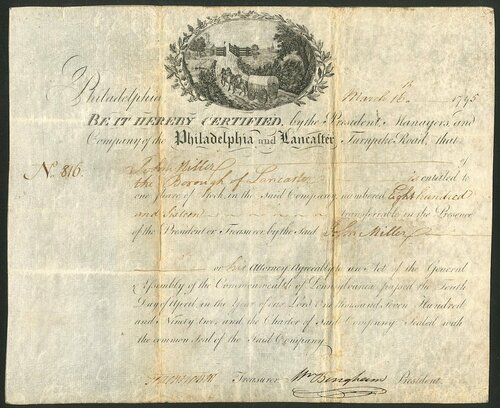 Philadelphia March 16th 1795
BE IT HEREBY CERTIFIED, by the President, Managers, and
Company of the Philadelphia and Lancaster Turnpike Road, that
No. 816. John Miller of
the Borough of Lancaster is entitled to
one Share of Stock, in the Said Company, numbered Eight hundred
and Sixteen transferrable in the Presence
of the President or Treasurer by the Said John Miller
or his Attorney Agreeably to an Act of the General
Assembly of the Commonwealth of Pennsylvania passed the Ninth
Day of April in the Year of our Lord One thousand Seven Hundred
and Ninety two, and the Charter of Said Company Sealed with
the common Seal of the Said Company
Treasurer Wm Bingham President